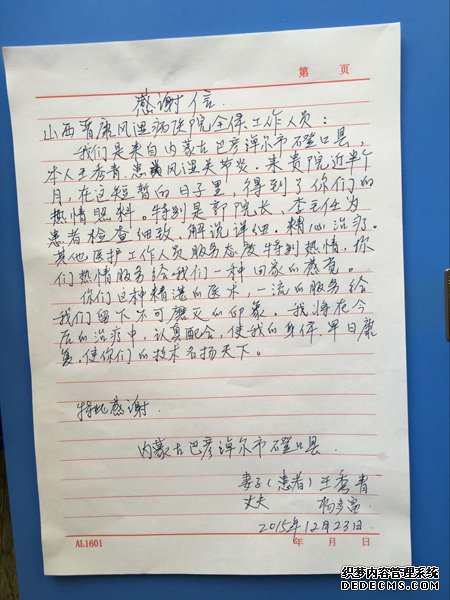 第 页
感谢信
山西晋康风湿病医院全体工作人员：
我们是来自内蒙古巴彦淖尔市磴口县，
本人王秀青患风湿关节炎。来贵院近半个
月，在这短暂的日子里，得到了你们的
热情照料。特别是郭院长，李主任为
患者检查细致，解说详细，精心治疗。
其他医护工作人员服务态度特别热情，你
们热情服务给我们一种回家的感觉。
你们这种精湛的医术，一流的服务给
我们留下不可磨灭的印象。我将在今
后的治疗中，认真配合，使我的身体早日康
复。使你们的技术名扬天下。
特此感谢.
内蒙古巴彦淖尔市磴口县
妻子(患者) 王秀青
丈夫
2015年12月23日.
AL1601 年 月 日
织梦内容管理系统
DEDECMS.COM